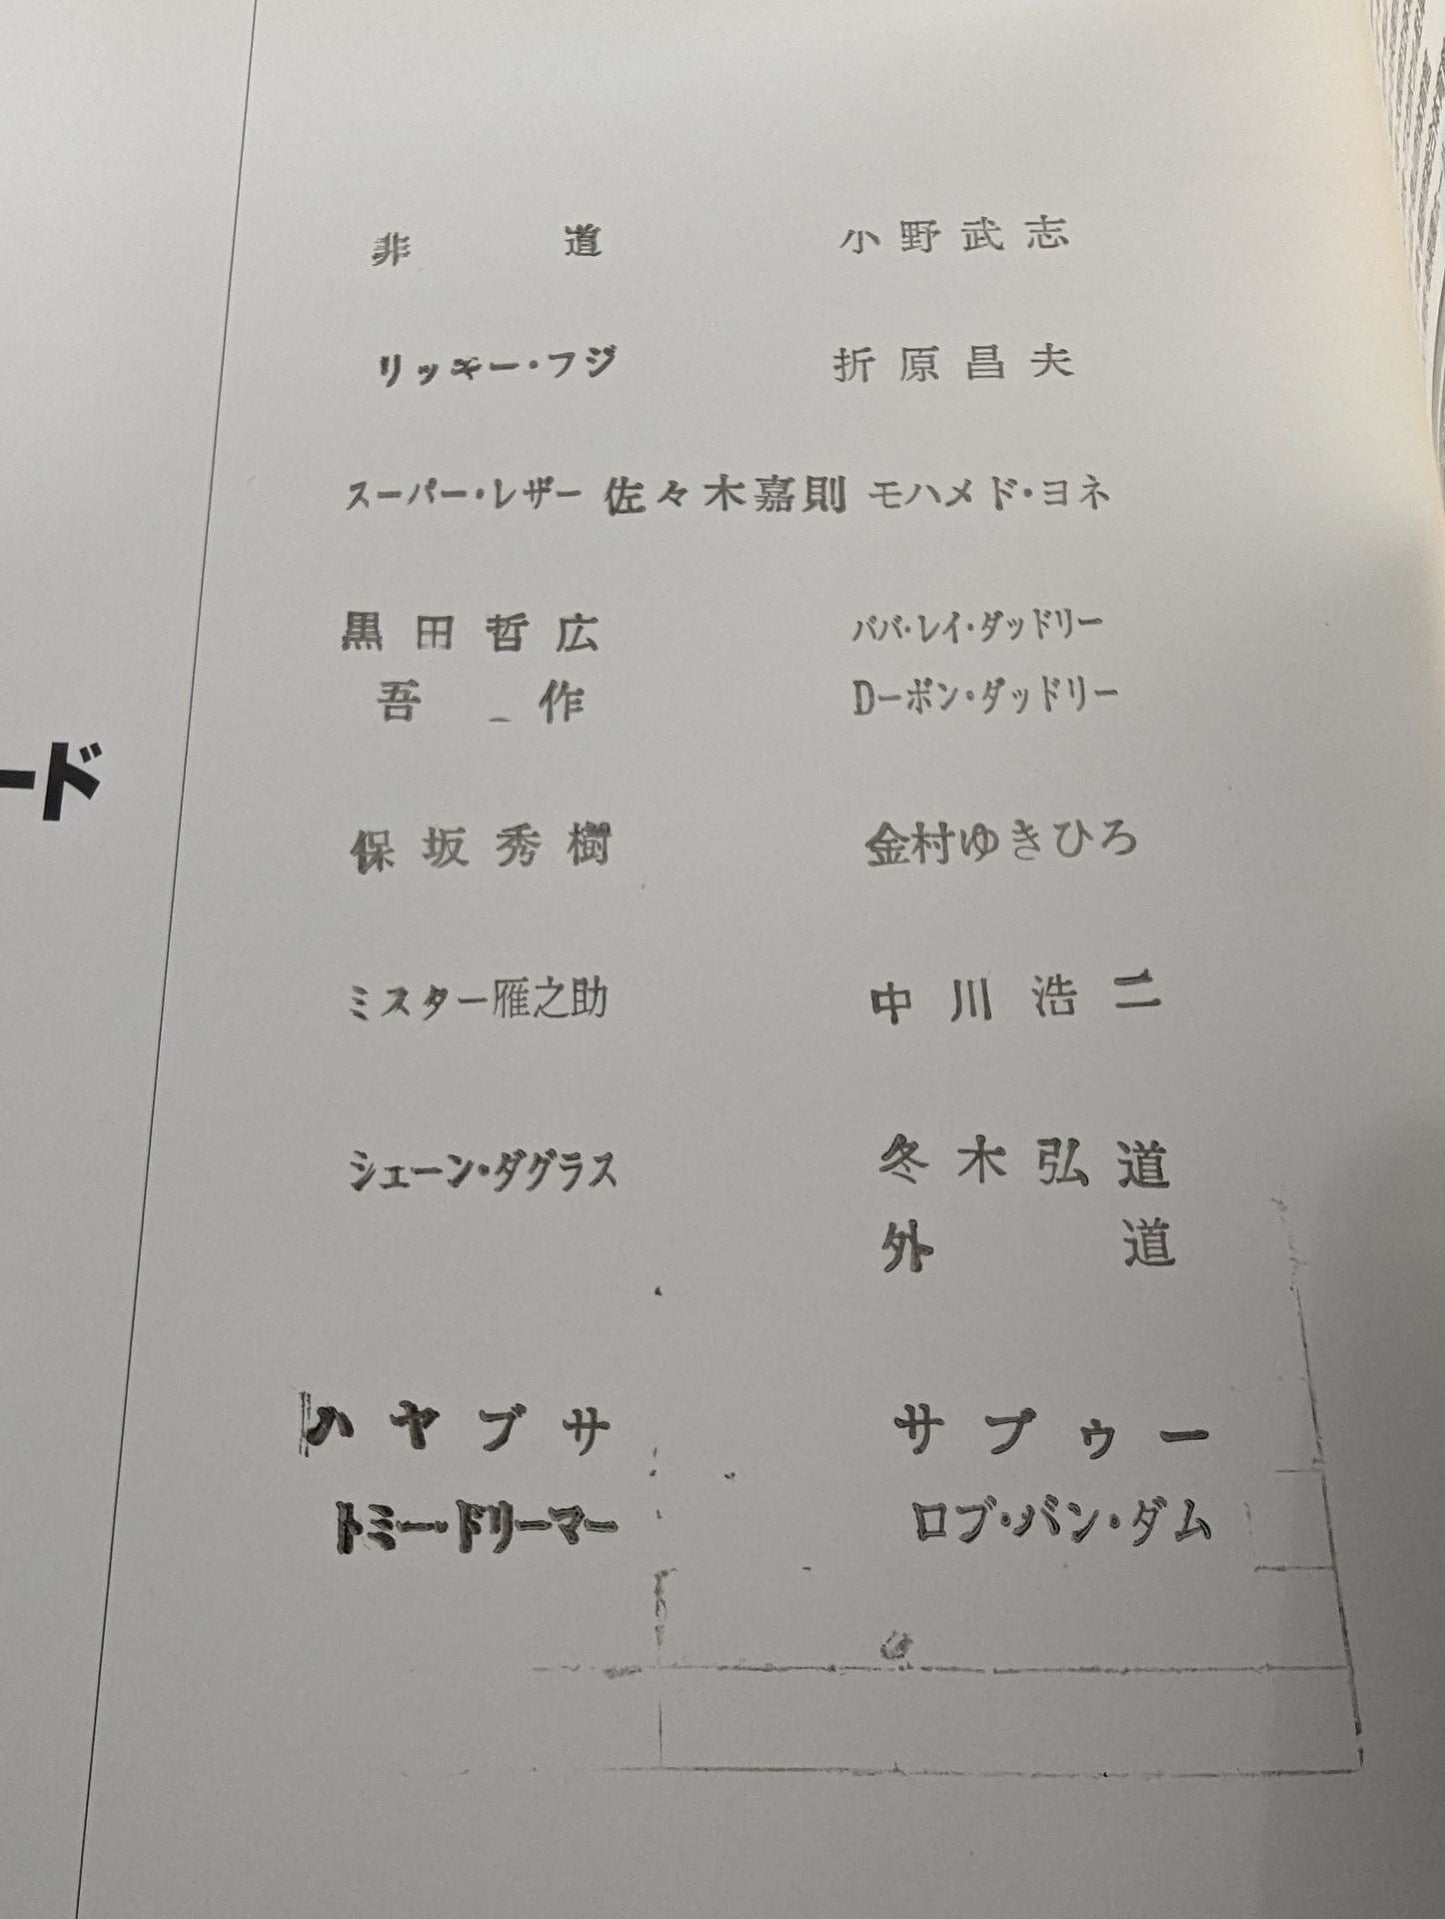 非道 小野武志
リッキー・フジ 折原昌夫
スーパー・レザー 佐々木嘉則 モハメド・ヨネ
黒田哲広 ババ・レイ・ダッドリー
吾作 D－ボン・ダッドリー
ード
保坂秀樹 金村ゆきひろ
ミスター雁之助 中川浩二
シェーン・ダグラス 冬木弘道
外道
ハヤブサ サブゥー
トミー・ドリーマー ロブ・バン・ダム